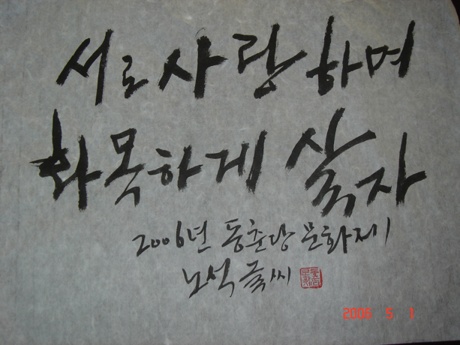 서로 사랑하며
화목하게 살자
2006년 동춘당 문화제
노석 글씨